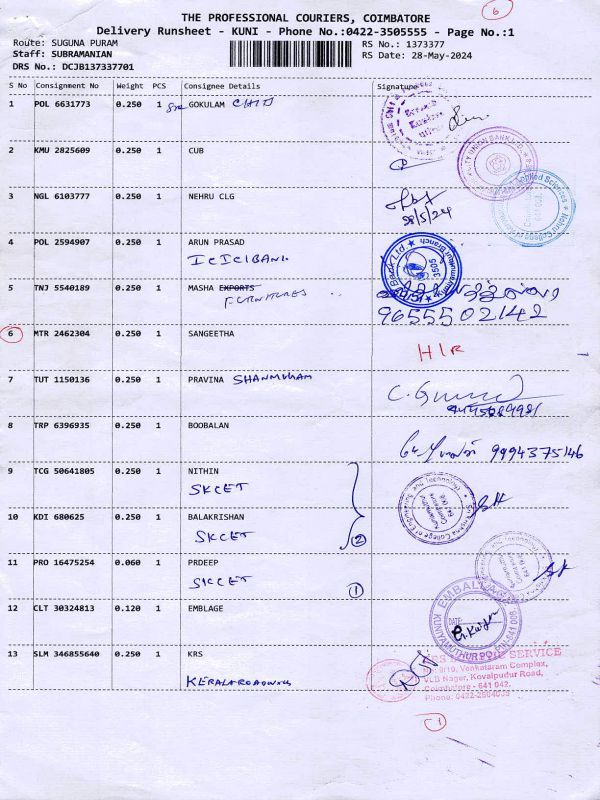 6
THE PROFESSIONAL COURIERS, COIMBATORE
Delivery Runsheet - KUNI - Phone No.:0422-3505555 - Page No.:1
Route: SUGUNA PURAM RS No.: 1373377
Staff: SUBRAMANIAN RS Date: 28-May-2024
DRS No.: DCJB137337701
S No Consignment No Weight PCS Consignee Details Signature
1 POL 6631773 0.250 1 Sree GOKULAM CHITS
2 KMU 2825609 0.250 1 CUB
3 NGL 6103777 0.250 1 NEHRU CLG
28/5/24
4 POL 2594907 0.250 1 ARUN PRASAD
ICICI BANK
5 TNJ 5540189 0.250 1 MASHA EXPORTS
FURNITURES
9655502142
6 MTR 2462304 0.250 1 SANGEETHA
H/R
7 TUT 1150136 0.250 1 PRAVINA SHANMUGAM
8 TRP 6396935 0.250 1 BOOBALAN
9994375146
9 TCG 50641805 0.250 1 NITHIN
SKCET
10 KDI 680625 0.250 1 BALAKRISHAN
SKCET 2
11 PRO 16475254 0.060 1 PRDEEP
SKCET 1
12 CLT 30324813 0.120 1 EMBLAGE
DATE:
KUNIYAMUTHUR PO, PIN-641 008.
13 SLM 346855640 0.250 1 KRS
KERALA ROADWAYS
SERVICE
9/10, Venkataram Complex,
VLB Nagar, Kovaipudur Road,
Coimbatore - 641 042.
1